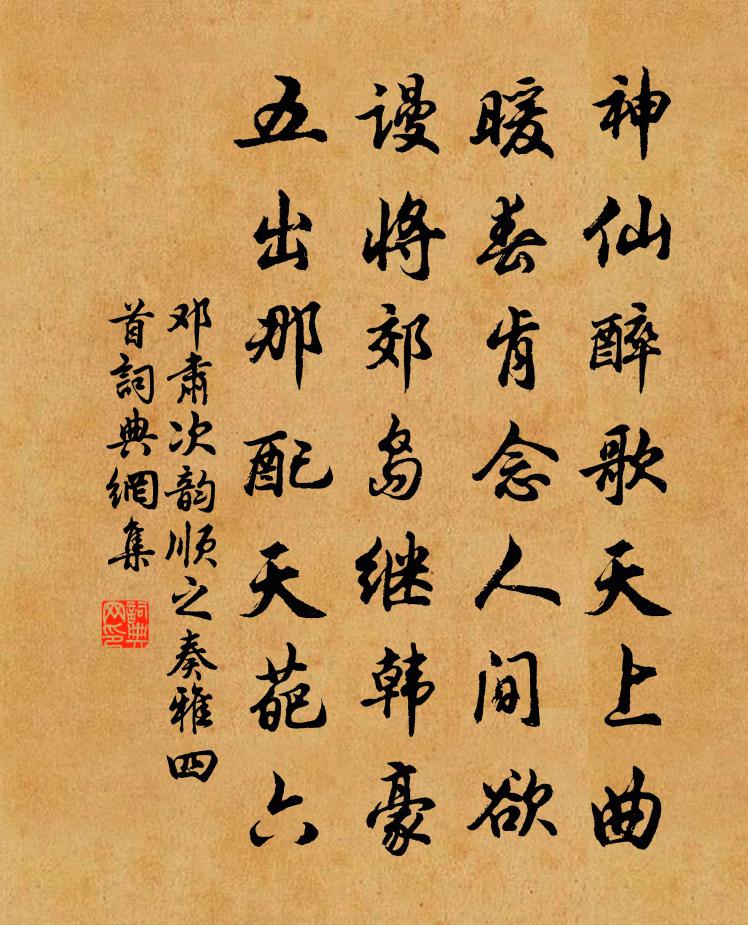 神仙醉歌天上曲
暖春肯念人间欲
谩将郊岛继韩豪
五出那配天葩六
邓肃次韵顺之奏雅四
首詞典網集
詞典網印